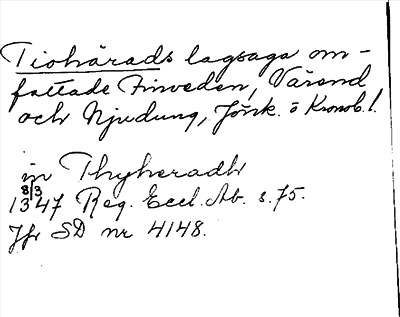 Tiohärads lagsaga om-
fattade Finveden, Värend
och Njudung, Jönk. o Kronob. l.
in Thyheradh
8/3
1347 Reg. Eccl. Ab. s. 75.
Jfr SD nr 4148.